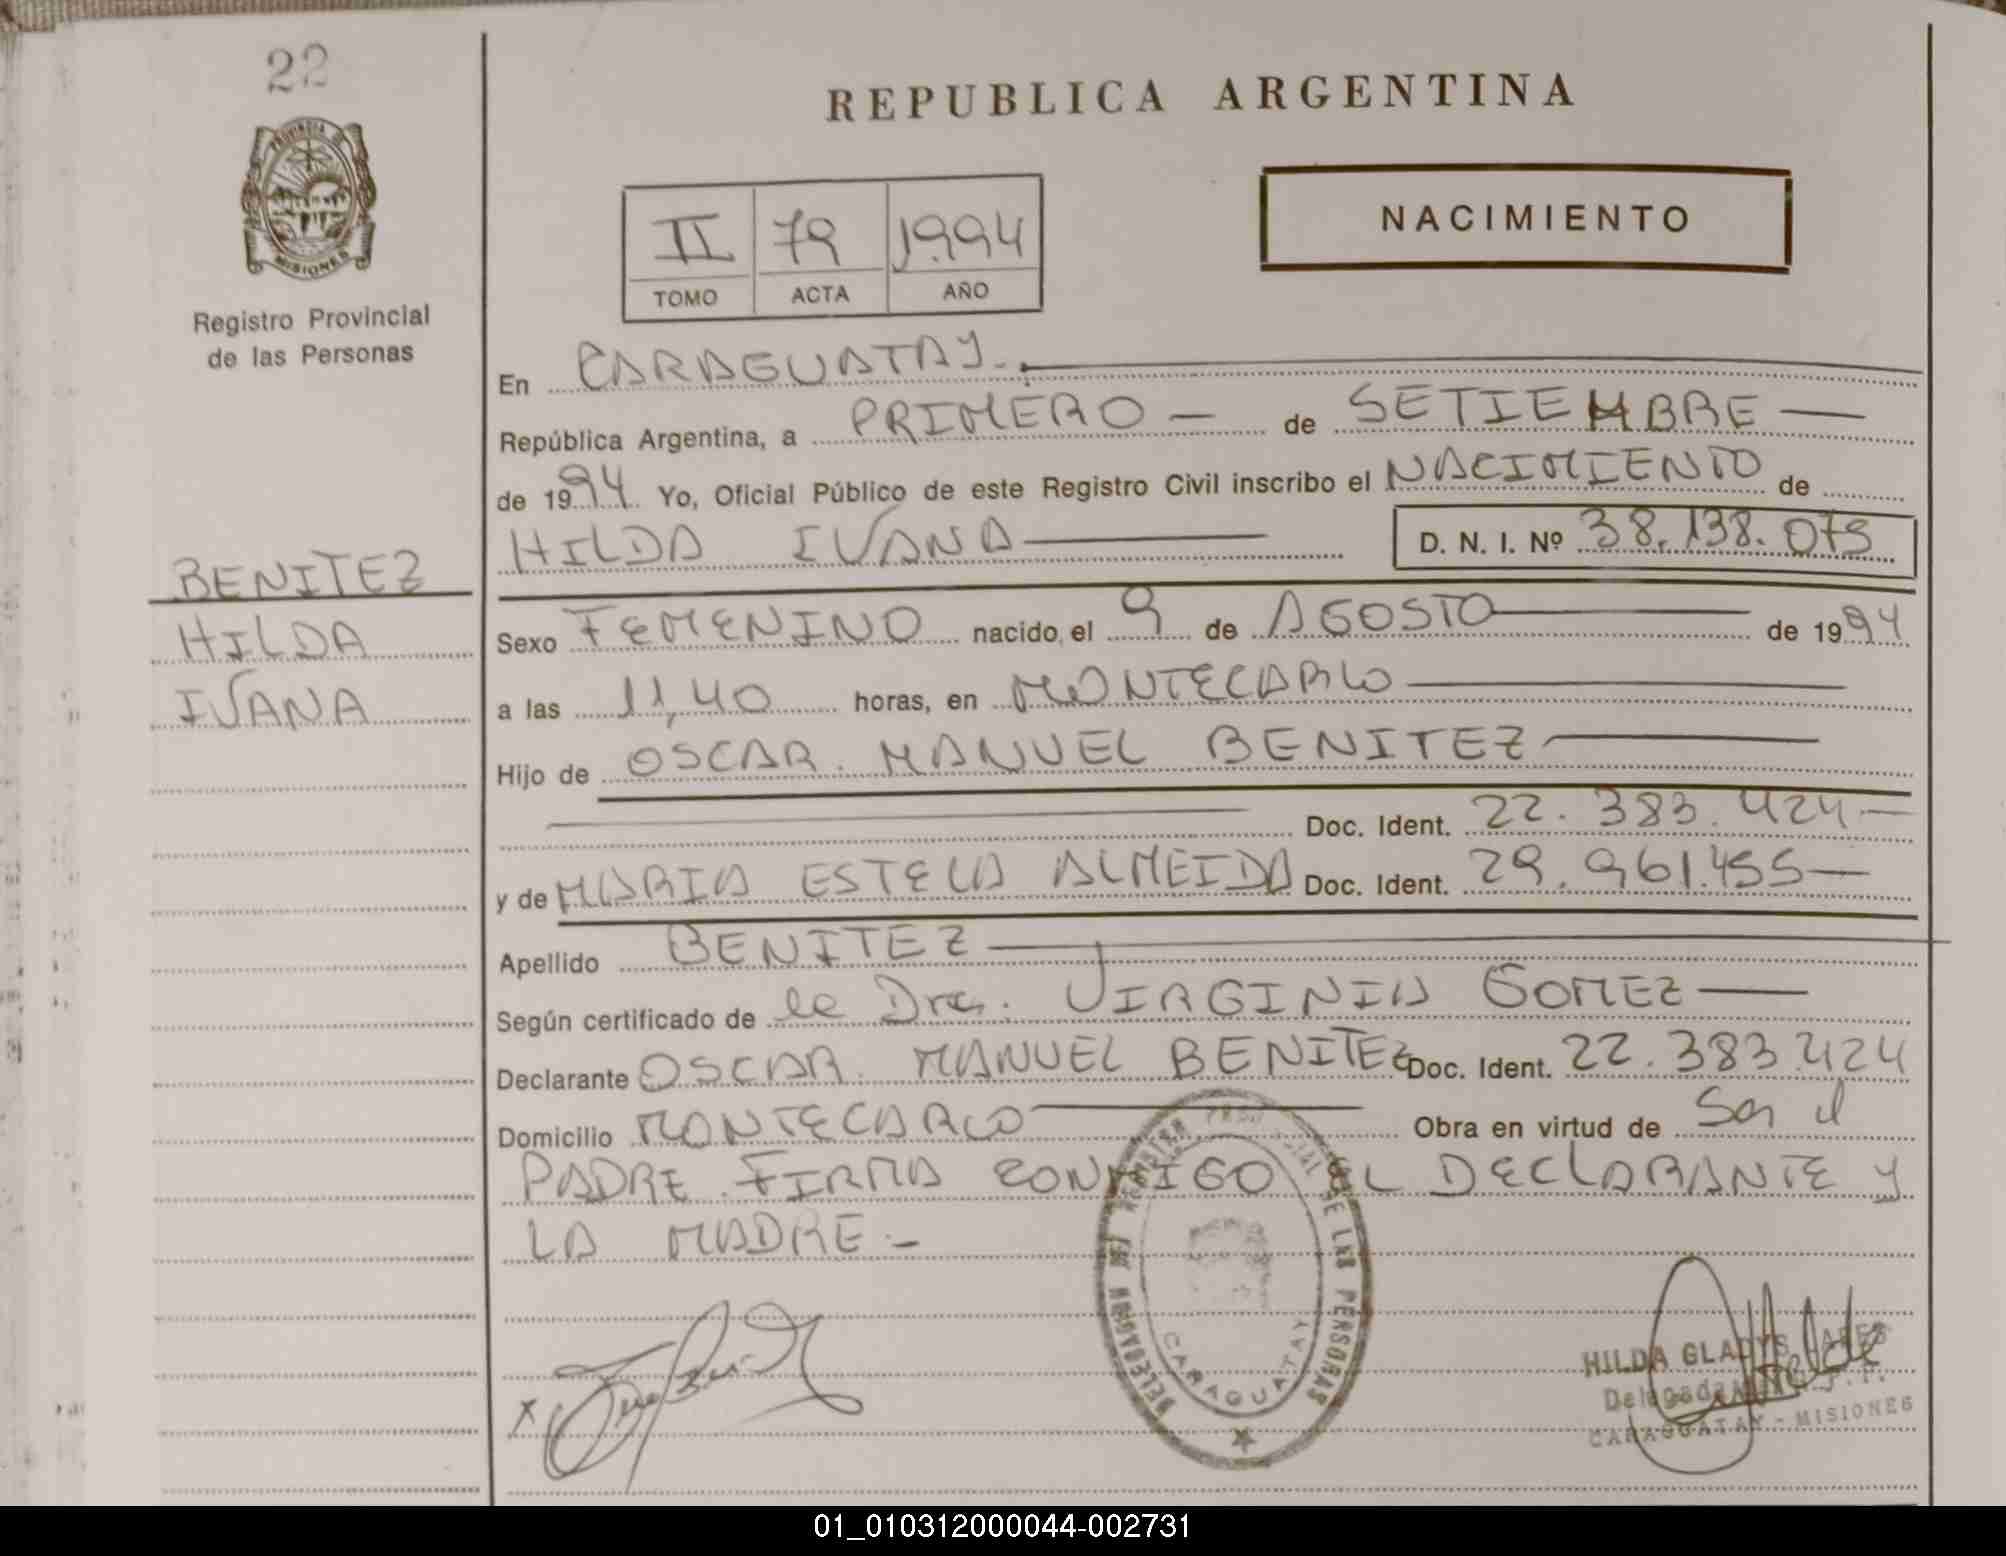 22
REPUBLICA ARGENTINA
PROVINCIA DE
MISIONES
Registro Provincial
de las Personas
NACIMIENTO
II 79 1994
TOMO ACTA AÑO
En CARAGUATAY.
República Argentina, a PRIMERO — de SETIEMBRE —
de 1994. Yo, Oficial Público de este Registro Civil inscribo el NACIMIENTO de
HILDA IVANA D. N. I. Nº 38.138.075
BENITEZ
HILDA
IVANA
Sexo FEMENINO nacido, el 9 de AGOSTO de 1994
a las 11,40 horas, en MONTECARLO
Hijo de OSCAR MANUEL BENITEZ
Doc. Ident. 22.383.424-
y de MARIA ESTELA ALMEIDA Doc. Ident. 29.961.455-
Apellido BENITEZ
Según certificado de la Dra. VIRGINIA GOMEZ —
Declarante OSCAR MANUEL BENITEZ Doc. Ident. 22.383.424
Domicilio MONTECARLO Obra en virtud de Ser el
PADRE. FIRMA CONMIGO EL DECLARANTE Y
LA MADRE.-
DELEGACION DEL REGISTRO PROVINCIAL DE LAS PERSONAS
CARAGUATAY
X
HILDA GLADYS
Delegada
CARAGUATAY - MISIONES
01_010312000044-002731